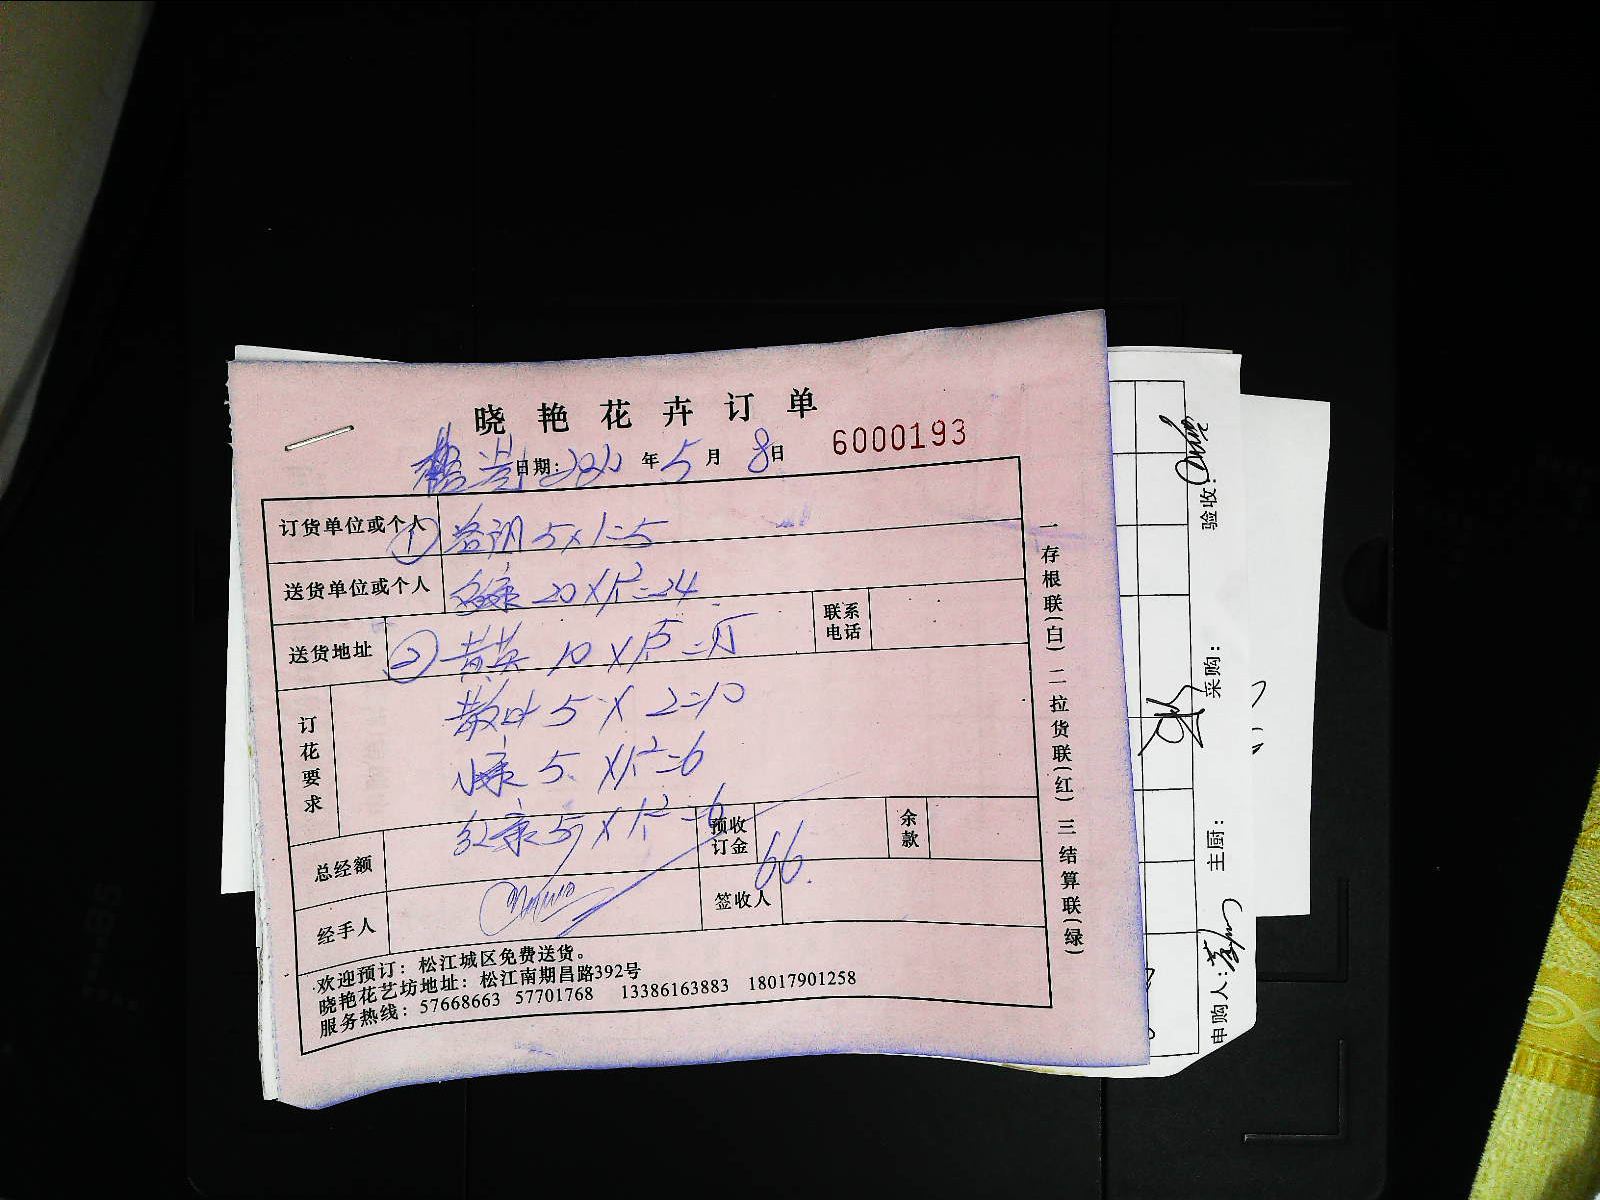 晓艳花卉订单
日期: 年5月8日 6000193
订货单位或个人 ① 洛阴 5×1=5
送货单位或个人 20×1.2=24
送货地址 ② 黄英 10×1.5=15 联系电话
订花要求
散叶 5×2=10
5×1.2=6
红康 5×1.2=6
总经额 预收订金 66. 余款
经手人 签收人
欢迎预订：松江城区免费送货。
晓艳花艺坊地址：松江南期昌路392号
服务热线：57668663 57701768 13386163883 18017901258
一存根联(白) 二拉货联(红) 三结算联(绿)
申购人: 主厨: 采购: 验收: